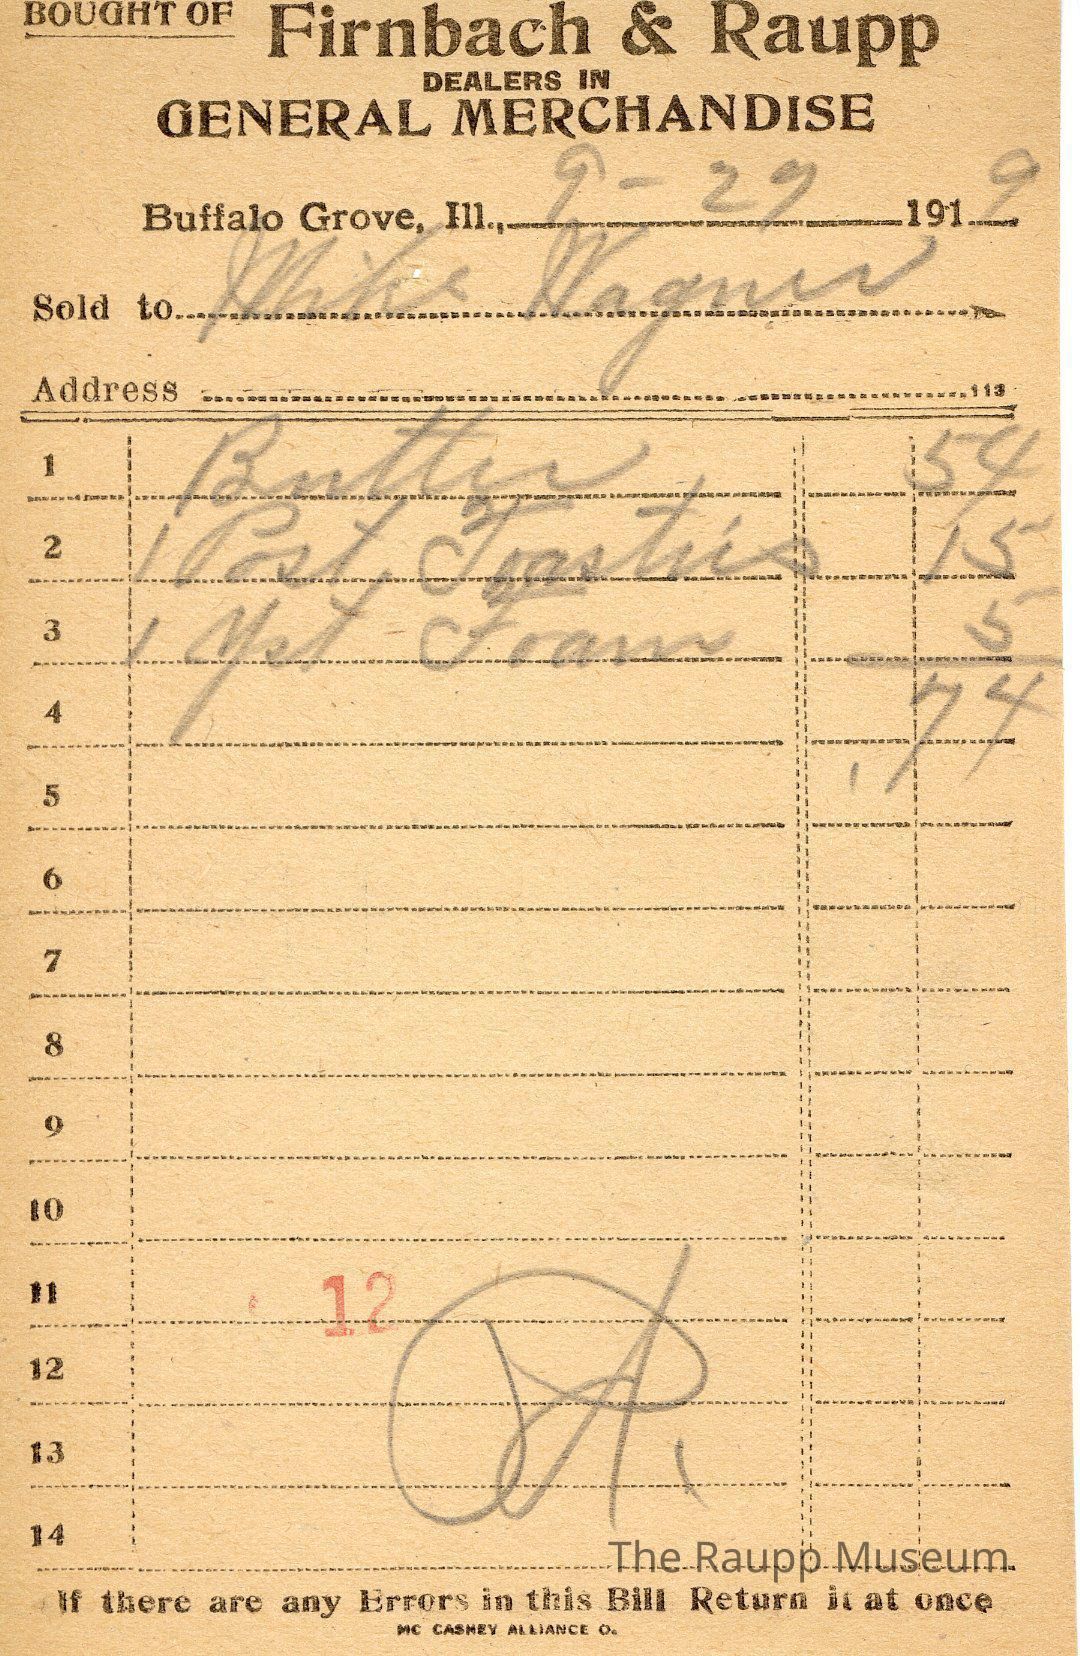 BOUGHT OF Firnbach & Raupp
DEALERS IN
GENERAL MERCHANDISE
Buffalo Grove, Ill., 9-29 1919
Sold to Mike Wagner
Address 113
1 Butter 54
2 1 Post Toasties 15
3 1 Yst Foam 5
4 74
5
6
7
8
9
10
11 12
12
13
14
The Raupp Museum
If there are any Errors in this Bill Return it at once
MC CASKEY ALLIANCE O.